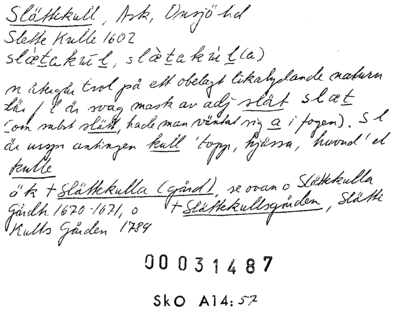 Slättekull, Ask, Onsjö hd
Slette Kulle 1602
slætakul, slætakul(a)
n återgår trol på ett obelagt likalydande naturn
är svag mask av adj slät slæt
(om subst slätt, hade man väntat sig a i fogen). Sl
är urspr antingen kull 'topp, hjässa, huvud' el
kulle
ök + Slättekulla (gård), se ovan o Slättekulla
Gårdh 1670-1671, o + Slättekullsgården, Slätte
Kulls Gården 1784
00031487
SkO A14:57